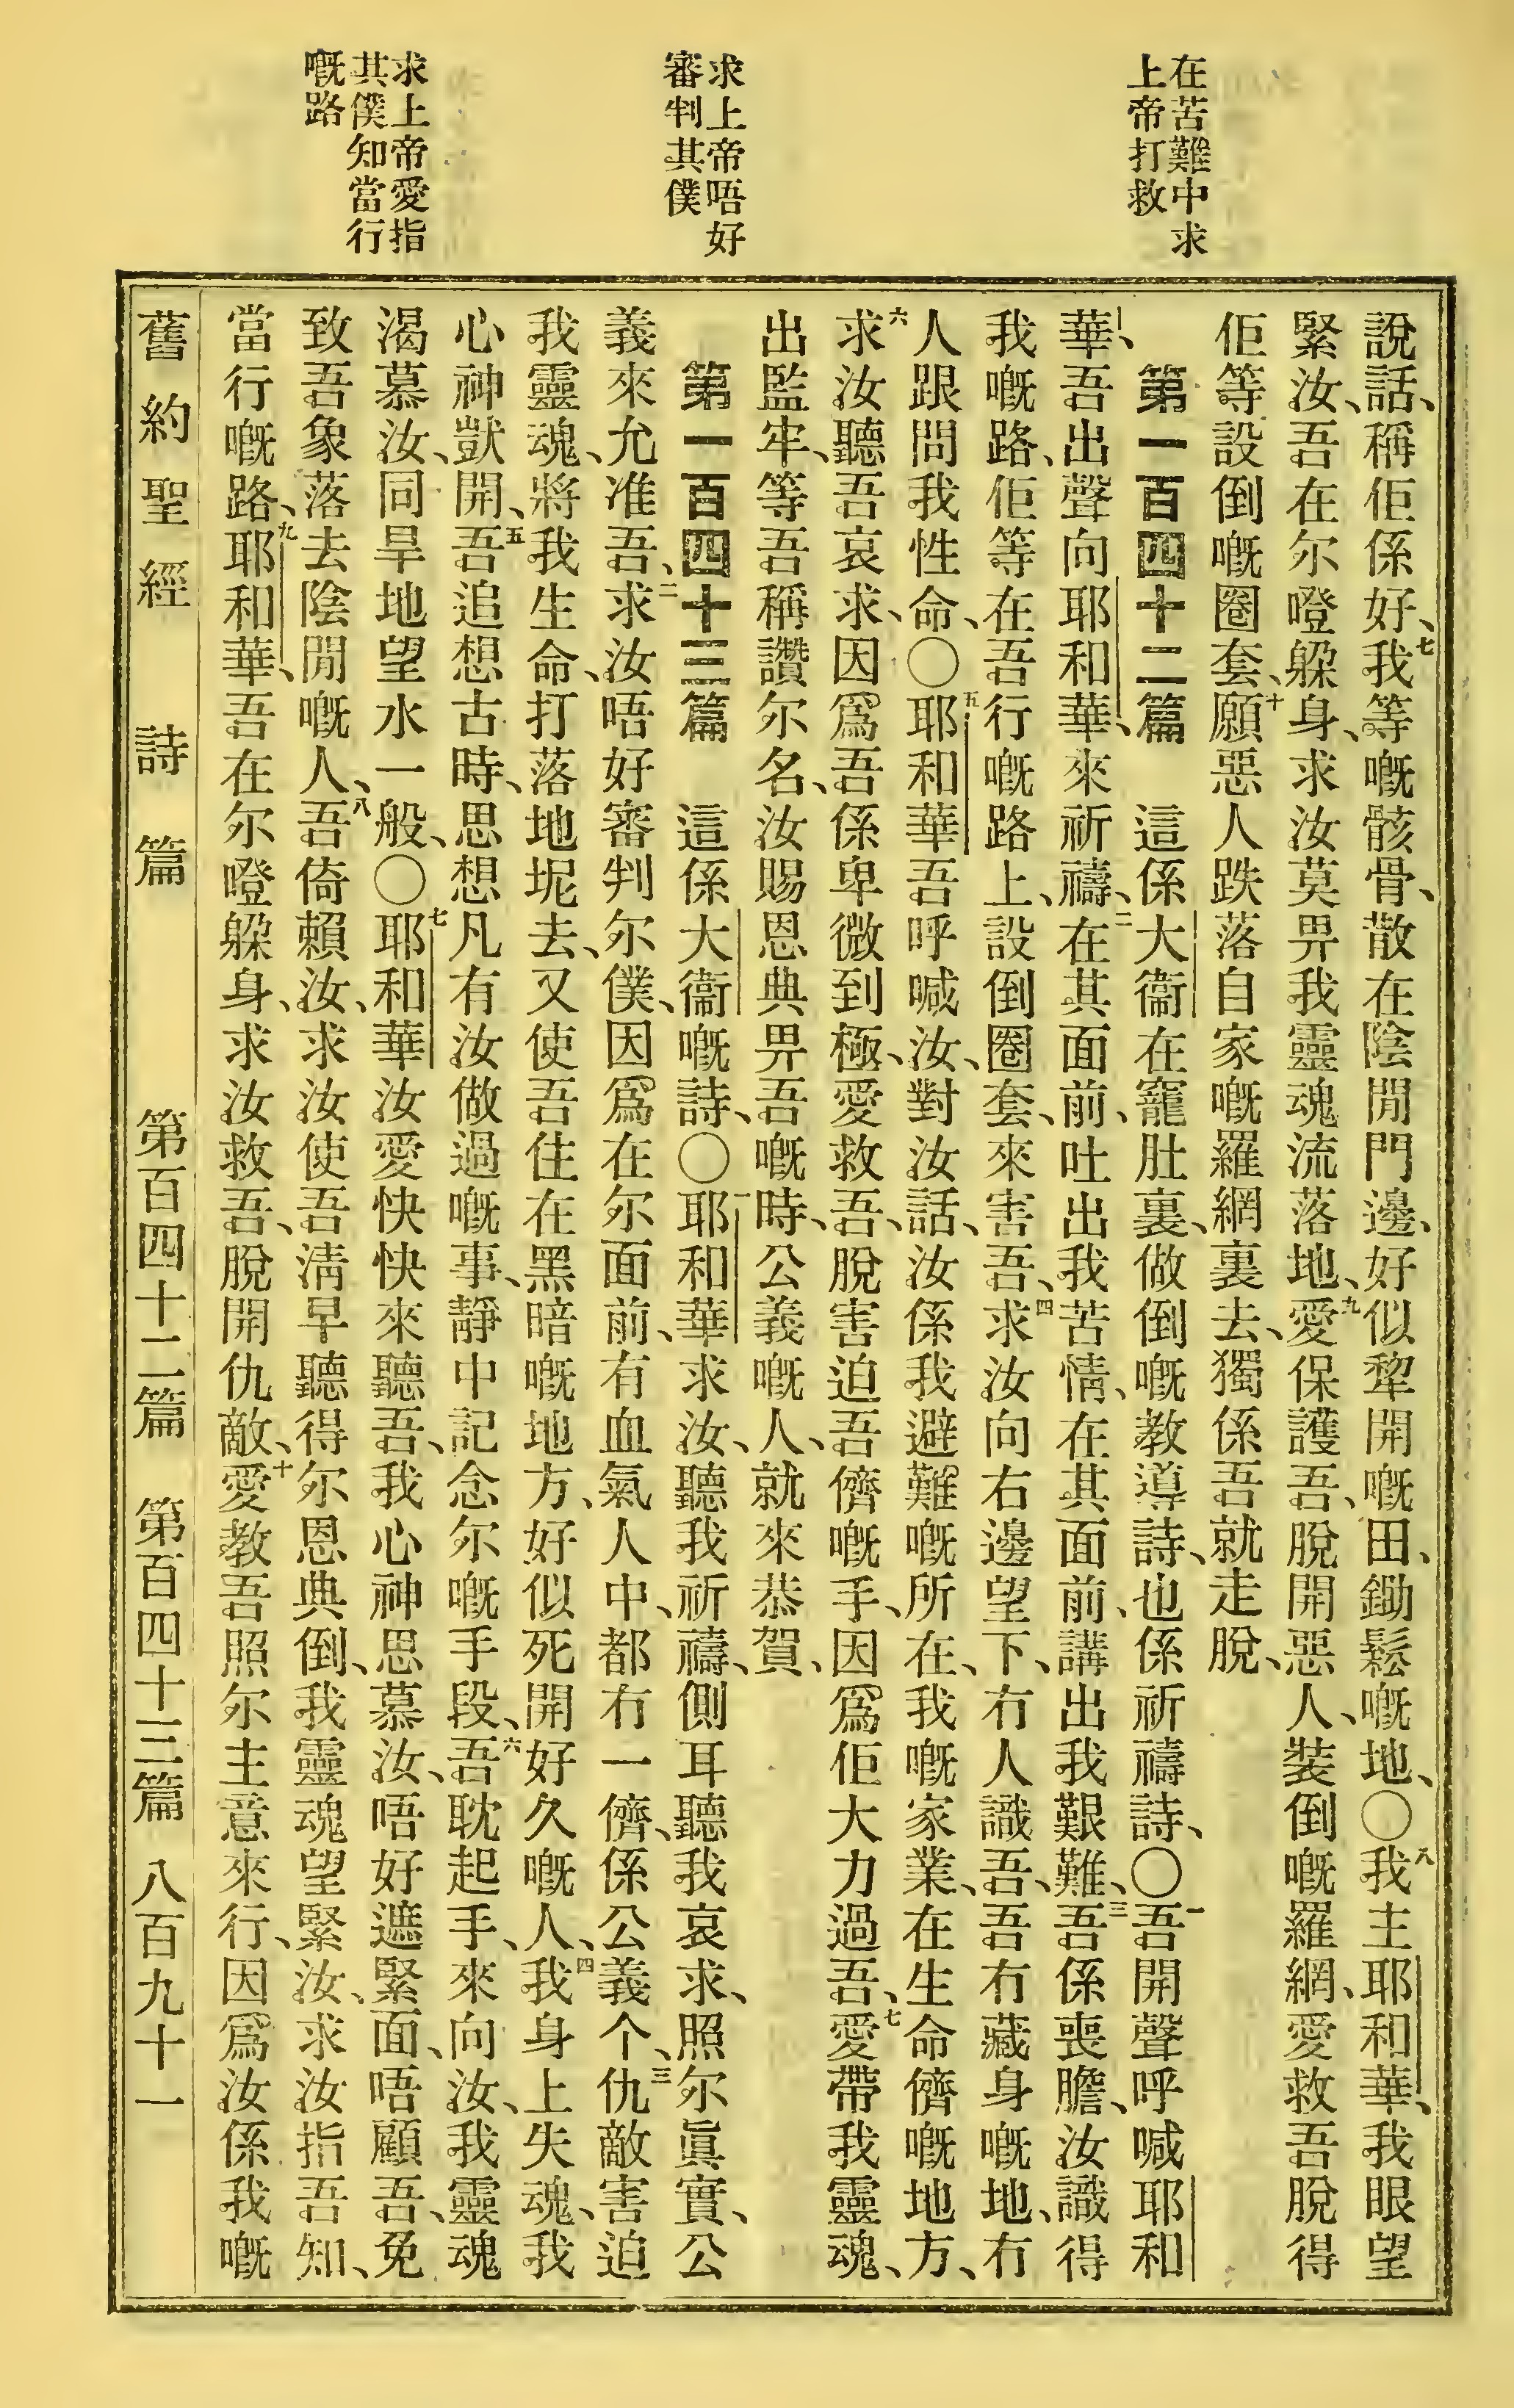 在苦難中求
上帝打救
求上帝唔好
審判其僕
求上帝愛指
其僕知當行
嘅路
說話、稱佢係好、七我等嘅骸骨、散在陰間門邊、好似犂開嘅田、鋤鬆嘅地、〇八我主耶和華、我眼望
緊汝、吾在尔嶝躲身、求汝莫畀我靈魂流落地、九愛保護吾、脫開惡人、裝倒嘅羅網、愛救吾脫得
佢等設倒嘅圈套、十願惡人跌落自家嘅羅網裏去、獨係吾就走脫、
第一百四十二篇 這係大衞在竉肚裏、做倒嘅教導詩、也係祈禱詩、〇一吾開聲呼喊耶和
華、吾出聲向耶和華、來祈禱、二在其面前、吐出我苦情、在其面前、講出我艱難、三吾係喪膽、汝識得
我嘅路、佢等在吾行嘅路上、設倒圈套、來害吾、四求汝向右邊望下、冇人識吾、吾冇藏身嘅地、冇
人跟問我性命、〇五耶和華吾呼喊汝、對汝話、汝係我避難嘅所在、我嘅家業、在生命儕嘅地方、
六求汝聽吾哀求、因爲吾係卑微到極、愛救吾、脫害迫吾儕嘅手、因爲佢大力過吾、七愛帶我靈魂、
出監牢、等吾稱讚尔名、汝賜恩典畀吾嘅時、公義嘅人、就來恭賀、
第一百四十三篇 這係大衞嘅詩、〇一耶和華求汝、聽我祈禱、側耳聽我哀求、照尔眞實、公
義來允准吾、二求汝唔好審判尔僕、因爲在尔面前、有血氣人中、都冇一儕、係公義个、三仇敵害迫
我靈魂、將我生命、打落地坭去、又使吾住在黑暗嘅地方、好似死開好久嘅人、四我身上失魂、我
心神獃開、五吾追想古時、思想凡有汝做過嘅事、靜中記念尔嘅手段、六吾耽起手、來向汝、我靈魂
渴慕汝、同旱地望水一般、〇七耶和華汝愛快快來聽吾、我心神思慕汝、唔好遮緊面、唔顧吾、免
致吾象落去陰間嘅人、八吾倚賴汝、求汝使吾淸早聽得尔恩典倒、我靈魂望緊汝、求汝指吾知、
當行嘅路、九耶和華、吾在尔嶝躲身、求汝救吾、脫開仇敵、十愛教吾照尔主意來行、因爲汝係我嘅
舊約聖經 詩篇 第百四十二篇 第百四十三篇 八百九十一